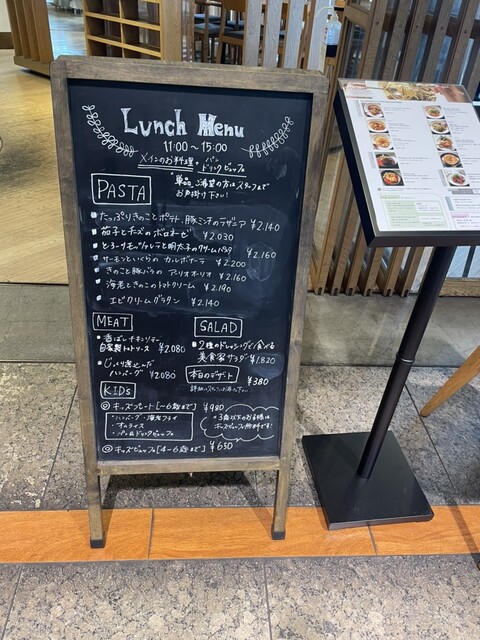 Lunch Menu
11:00～15:00
メインのお料理+パン ドリンクビュッフェ
*単品ご希望の方はスタッフまで
お声掛け下さい!
PASTA
たっぷりきのことポテト、豚ミンチのラザニア ¥2.140
茄子とチーズのボロネーゼ ¥2.030
とろーりモッツァレラと明太子のクリームパスタ ¥2.160
サーモンといくらのカルボナーラ ¥2.200
きのこと豚バラのアリオ・オーリオ ¥2.160
海老ときのこのトマトクリーム ¥2.190
エビクリームグラタン ¥2.140
MEAT
香ばしチキンソテー
自家製トマトソース ¥2.080
じっくり煮込んだ
ハンバーグ ¥2.080
SALAD
2種のドレッシングで食べる
美食家サラダ ¥1.820
本日のデザート ¥380
KIDs
◎キッズプレート[〜6歳まで] ¥980
・ハンバーグ・海老フライ
・オムライス
・パン&ドリンクビュッフェ
・3歳以下のお子様は
キッズビュッフェ無料です!
◎キッズビュッフェ[4~6歳まで] ¥650